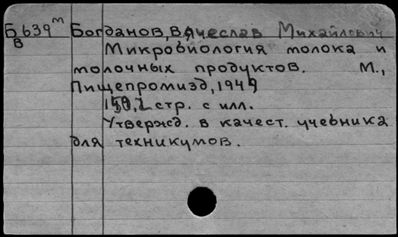 Б639м Богданов, Вячеслав Михайлович
В
Микробиология молока и
молочных продуктов. М.,
Пищепромизд, 1949
стр. с илл.
Утвержд. в качест. учебника
для техникумов.